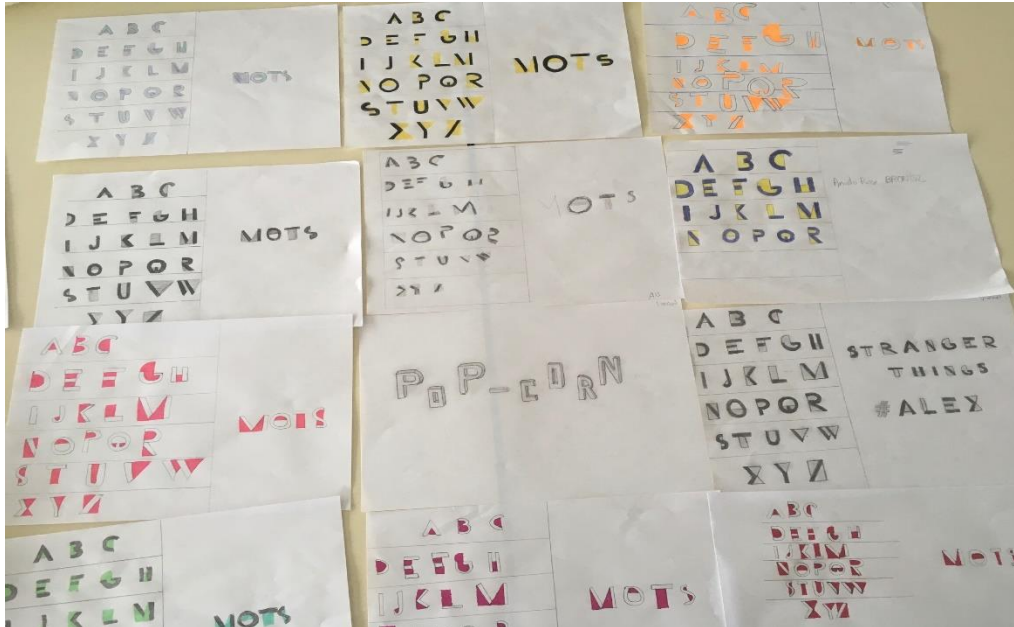 A B C
D E F G H
I J K L M
N O P Q R
S T U V W
X Y Z
MOTS
A B C
D E F G H
I J K L M
N O P Q R
S T U V W
X Y Z
MOTS
A B C
D E F G H
I J K L M
N O P Q R
S T U V W
X Y Z
MOTS
A B C
D E F G H
I J K L M
N O P Q R
S T U V W
X Y Z
MOTS
A B C
D E F G H
I J K L M
N O P Q R
S T U V W
X Y Z
MOTS
A B C
D E F G H
I J K L M
N O P Q R
A B C
D E F G H
I J K L M
N O P Q R
S T U V W
X Y Z
MOTS
POP-CORN
A B C
D E F G H
I J K L M
N O P Q R
S T U V W
X Y Z
STRANGER
THINGS
#ALEX
A B C
D E F G H
I J K L M
MOTS
A B C
D E F G H
I J K L M
MOTS
A B C
D E F G H
I J K L M
N O P Q R
S T U V W
X Y Z
MOTS